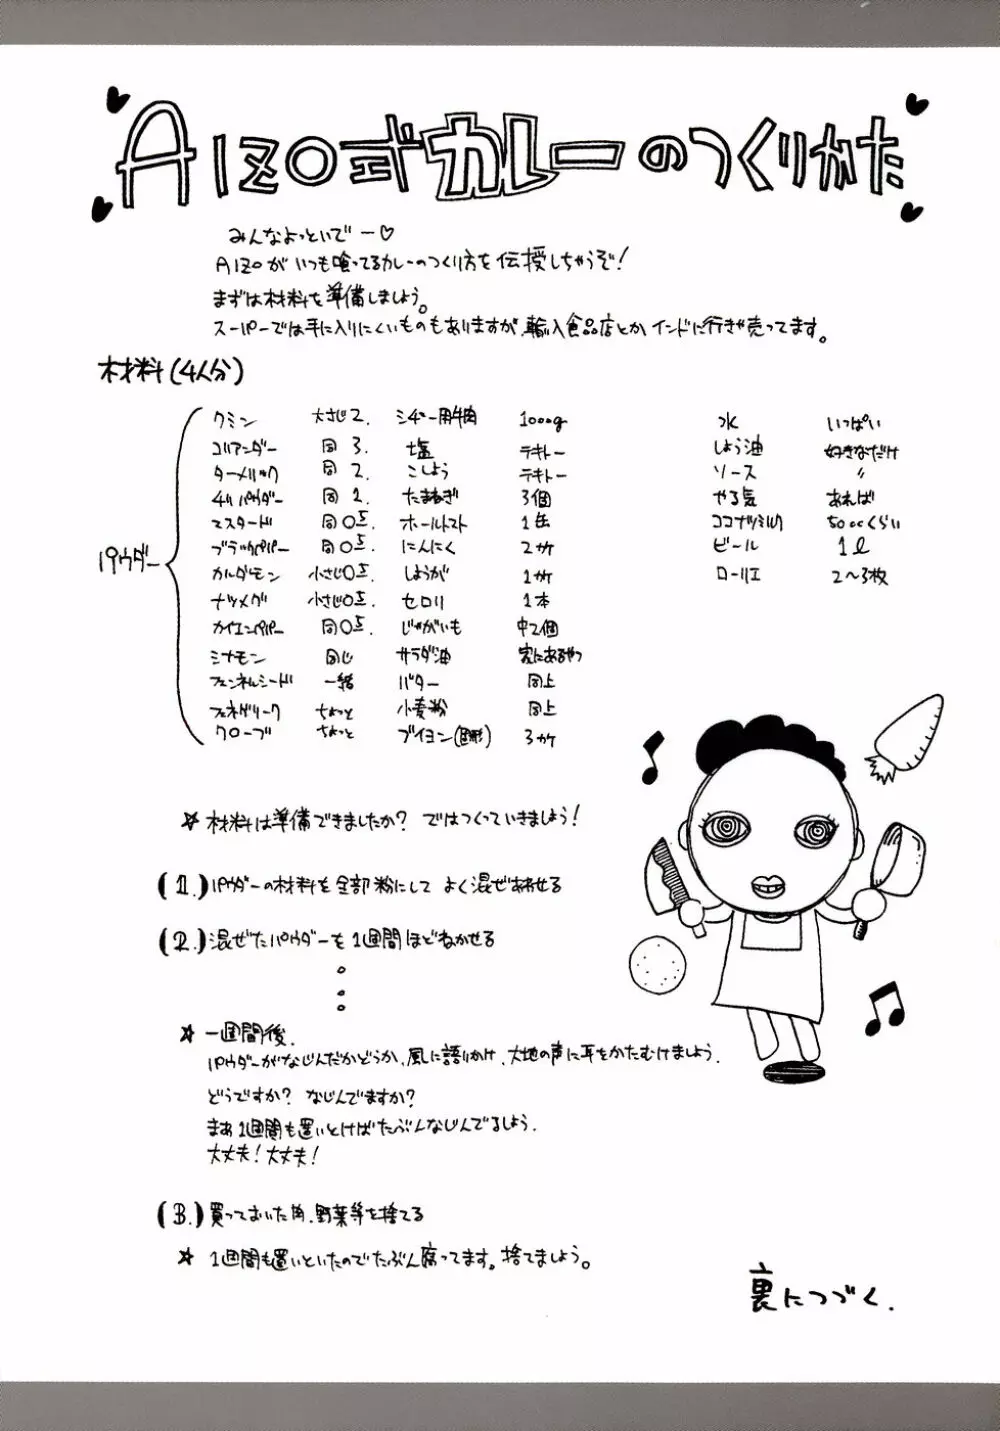 AIZO式カレーのつくりかた
みんなよっといでー♡
AIZOがいつも喰ってるカレーのつくり方を伝授しちゃうぞ!
まずは材料を準備しましょう。
スーパーでは手に入りにくいものもありますが、輸入食品店とかインドに行きゃ売ってます。
材料(4人分)
パウダー
クミン 大さじ2.
コリアンダー 同 3.
ターメリック 同 2.
チリパウダー 同 1.
マスタード 同 0.5.
ブラックペパー 同 0.5.
カルダモン 小さじ0.5.
ナツメグ 小さじ0.5.
カイエンペパー 同 0.5.
シナモン 同じ
フェンネルシード 一緒
フェネグリーク ちょっと
クローブ ちょっと
シチュー用牛肉 1000g
塩 テキトー
こしょう テキトー
たまねぎ 3個
ホールトマト 1缶
にんにく 2ヶケ
しょうが 1ヶケ
セロリ 1本
じゃがいも 中2個
サラダ油 家にあるやつ
バター 同上
小麦粉 同上
ブイヨン(固形) 3ヶケ
水 いっぱい
しょう油 好きなだけ
ソース 〃
やる気 あれば
ココナツミルク 50ccくらい
ビール 1ℓ
ローリエ 2〜3枚
☆ 材料は準備できましたか? ではつくっていきましょう!
(1.) パウダーの材料を全部粉にして よく混ぜあわせる
(2.) 混ぜたパウダーを1週間ほどねかせる
☆ 一週間後.
パウダーがなじんだかどうか、風に語りかけ、大地の声に耳をかたむけましょう.
どうですか? なじんでますか?
まぁ1週間も置いとけばたぶんなじんでるしょう.
大丈夫! 大丈夫!
(3.) 買っておいた肉、野菜等を捨てる
☆ 1週間も置いといたのでたぶん腐ってます。捨てましょう。
裏につづく.